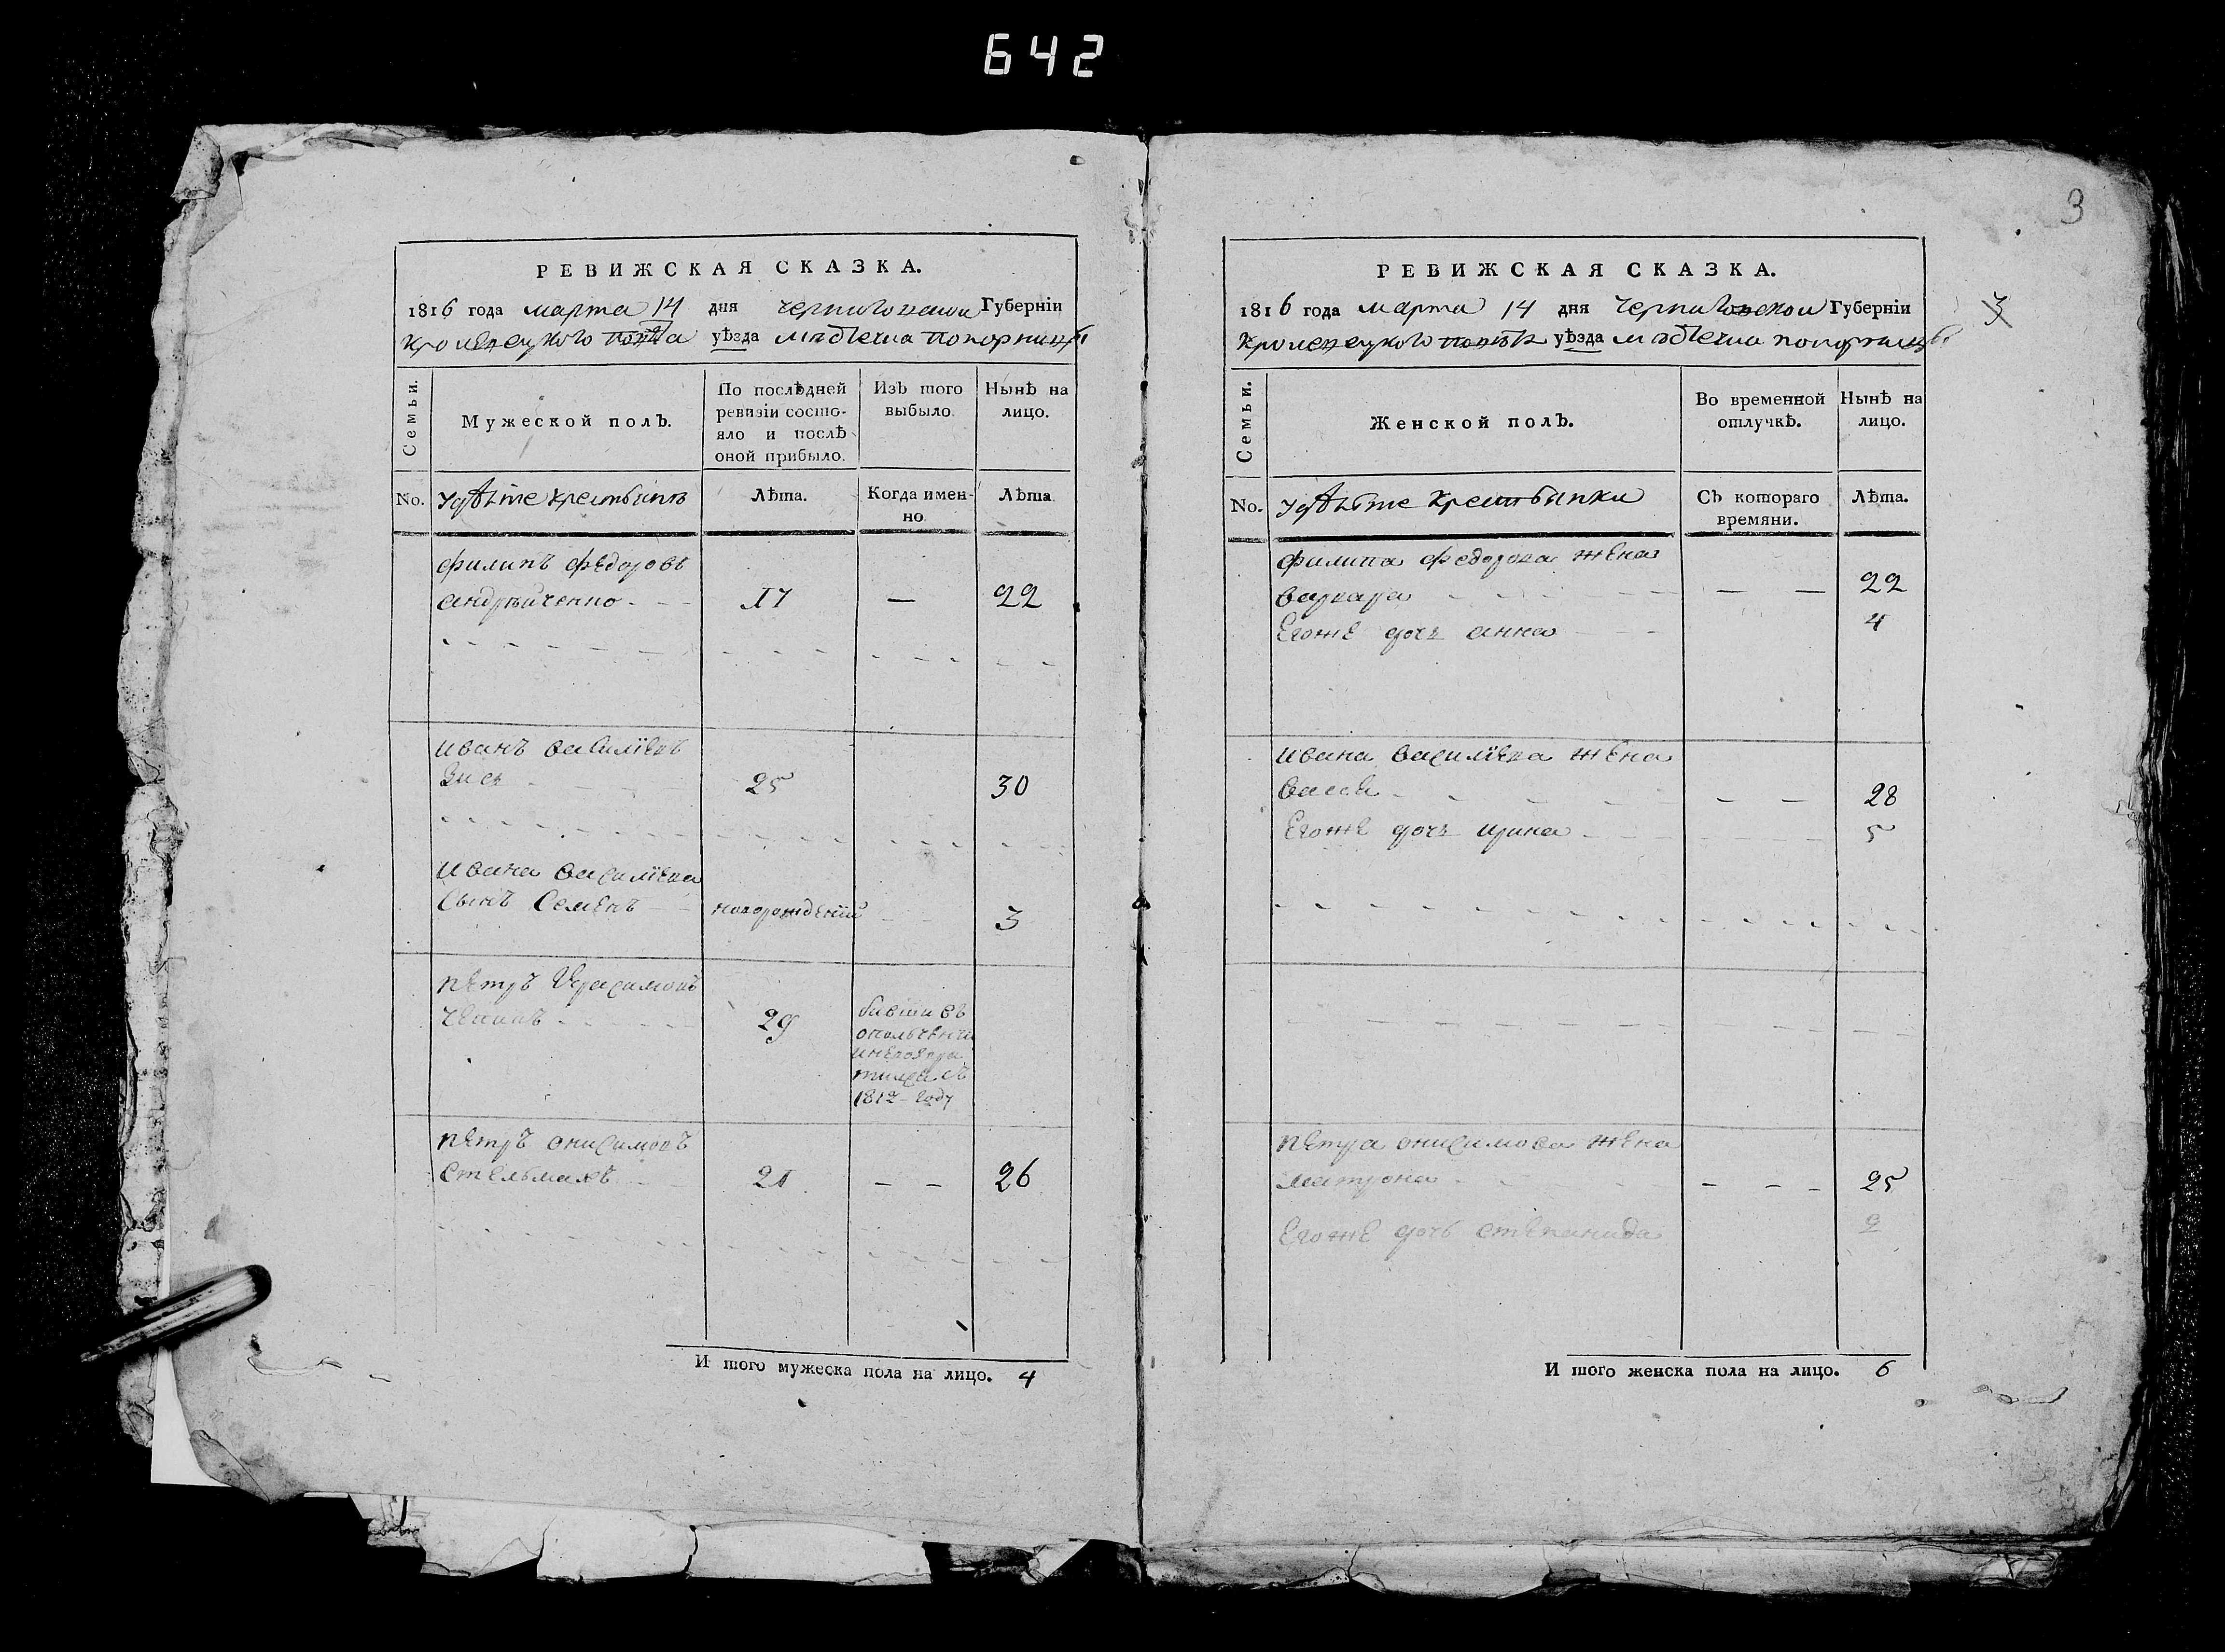 642
3
РЕВИЖСКАЯ СКАЗКА.
1816 года марта 14 дня Черниговской Губерніи
Кролевецкого повѣта уѣзда мѣстечка Понорницѣ
Семьи.
Мужеской полЪ.
По послѣдней
ревизіи состо-
яло и послѣ
оной прибыло.
ИзЪ того
выбыло.
Нынѣ на
лицо.
No.
крестьяне
Лѣта.
Когда имен-
но.
Лѣта
филипЪ федоровЪ
андрейченко 17 — 22
ИванЪ василіевЪ
25 30
Ивана василіева
сынЪ семенЪ новорожденій 3
петрЪ герасимовЪ
29 бивши вЪ
ополченіи
и не возвра
тился сЪ
1812 году
петрЪ онисимовЪ
стельмахЪ 21 — — 26
И того мужеска пола на лицо. 4
РЕВИЖСКАЯ СКАЗКА.
1816 года марта 14 дня Черниговской Губерніи
Кролевецкого повѣта уѣзда мѣстечка Понорницѣ
3
Семьи.
Женской полЪ.
Во временной
отлучкѣ.
НынѣЪ на
лицо.
No.
крестьянки
СЪ котораго
времяни.
Лѣта.
филипа федорова жена
варвара — — 22
Егоже дочь анна 4
Ивана василіева жена
— — 28
Егоже дочь ирина 5
петра онисимова жена
матрона — — — 25
Егоже дочь степанида 2
И того женска пола на лицо. 6